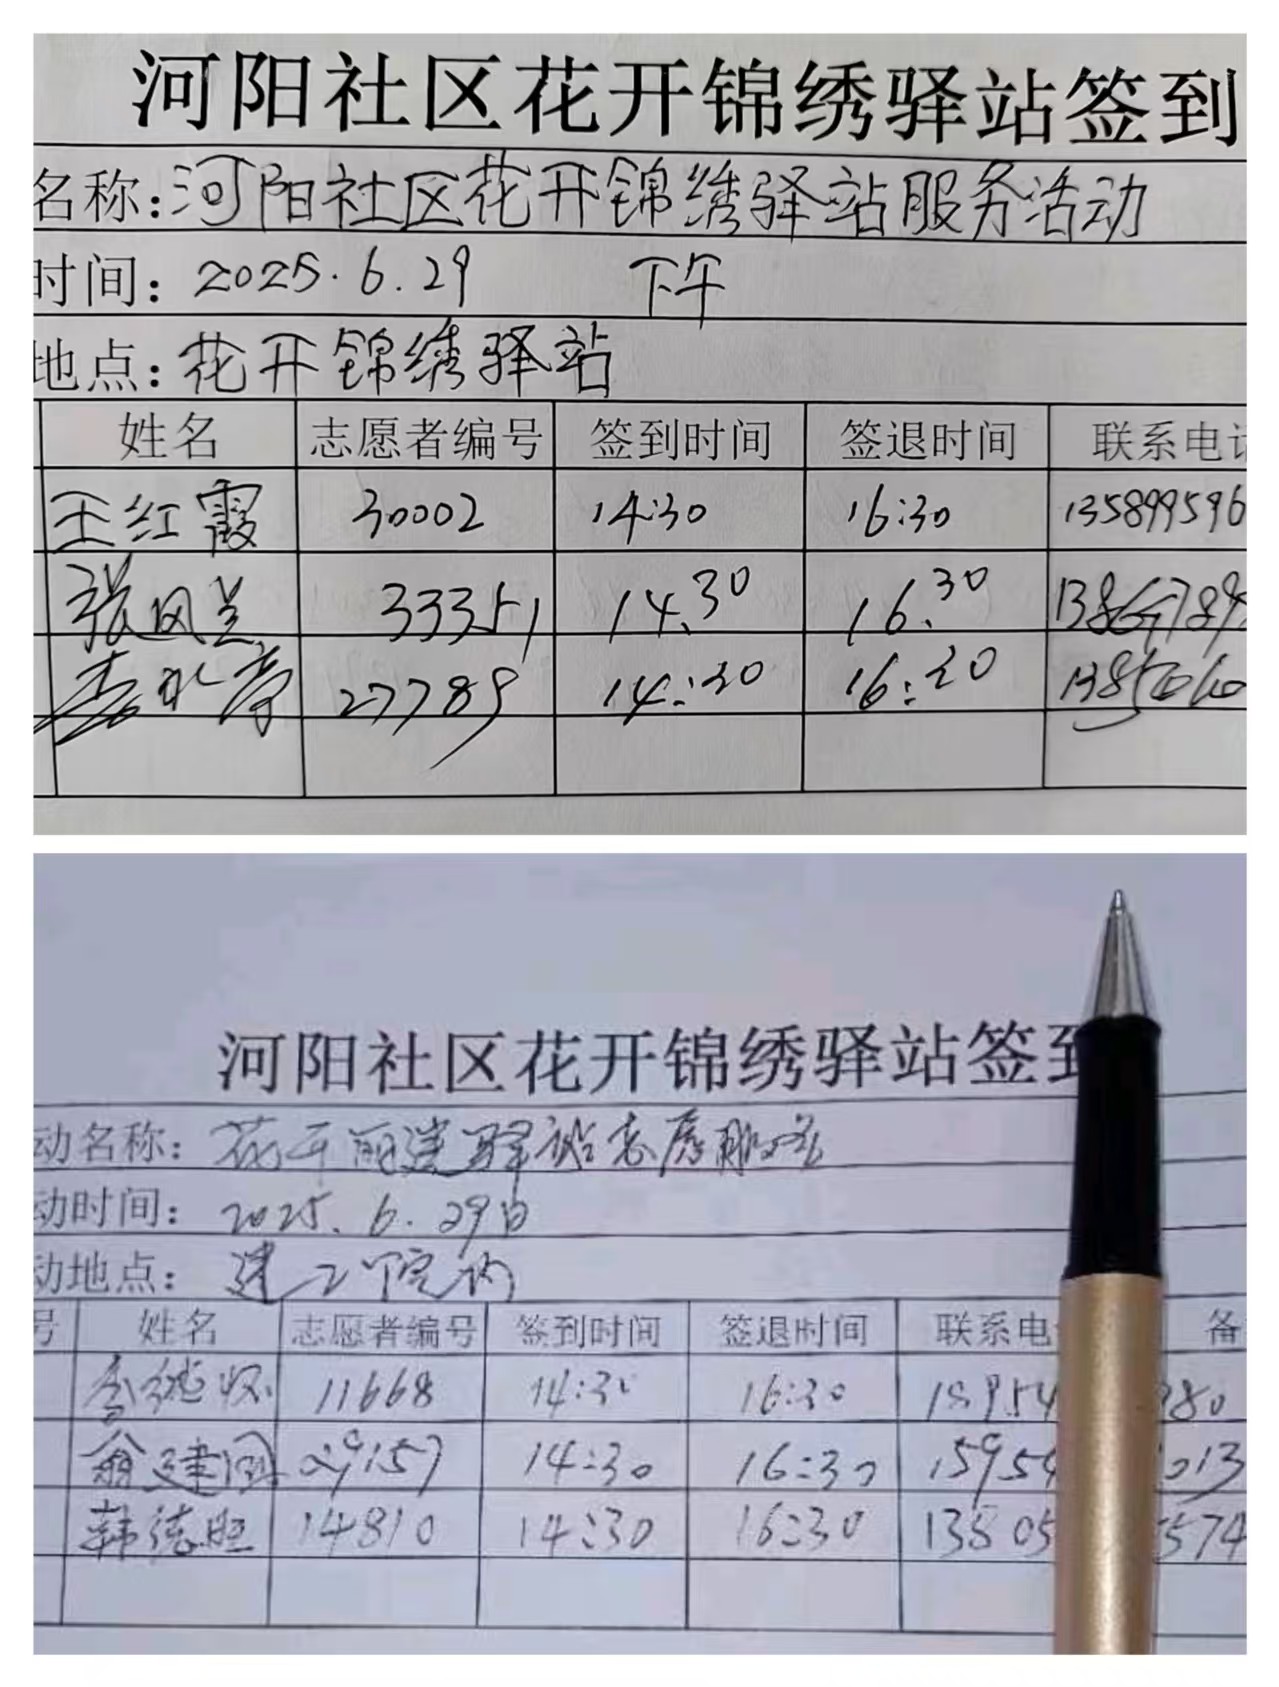 河阳社区花开锦绣驿站签到
名称：河阳社区花开锦绣驿站服务活动
时间：2025.6.29 下午
地点：花开锦绣驿站
姓名 志愿者编号 签到时间 签退时间 联系电话
王红霞 30002 14:30 16:30 135899596
张凤兰 33351 14.30 16.30
27789 14:30 16:30
河阳社区花开锦绣驿站签到
动名称：花开 驿站志愿服务
动时间：2025.6.29日
动地点：建工院内
号 姓名 志愿者编号 签到时间 签退时间 联系电 备
11668 14:30 16:30 18954 980
翁建国 29157 14:30 16:30 15954 013
韩德胜 14810 14:30 16:30 13805 5574